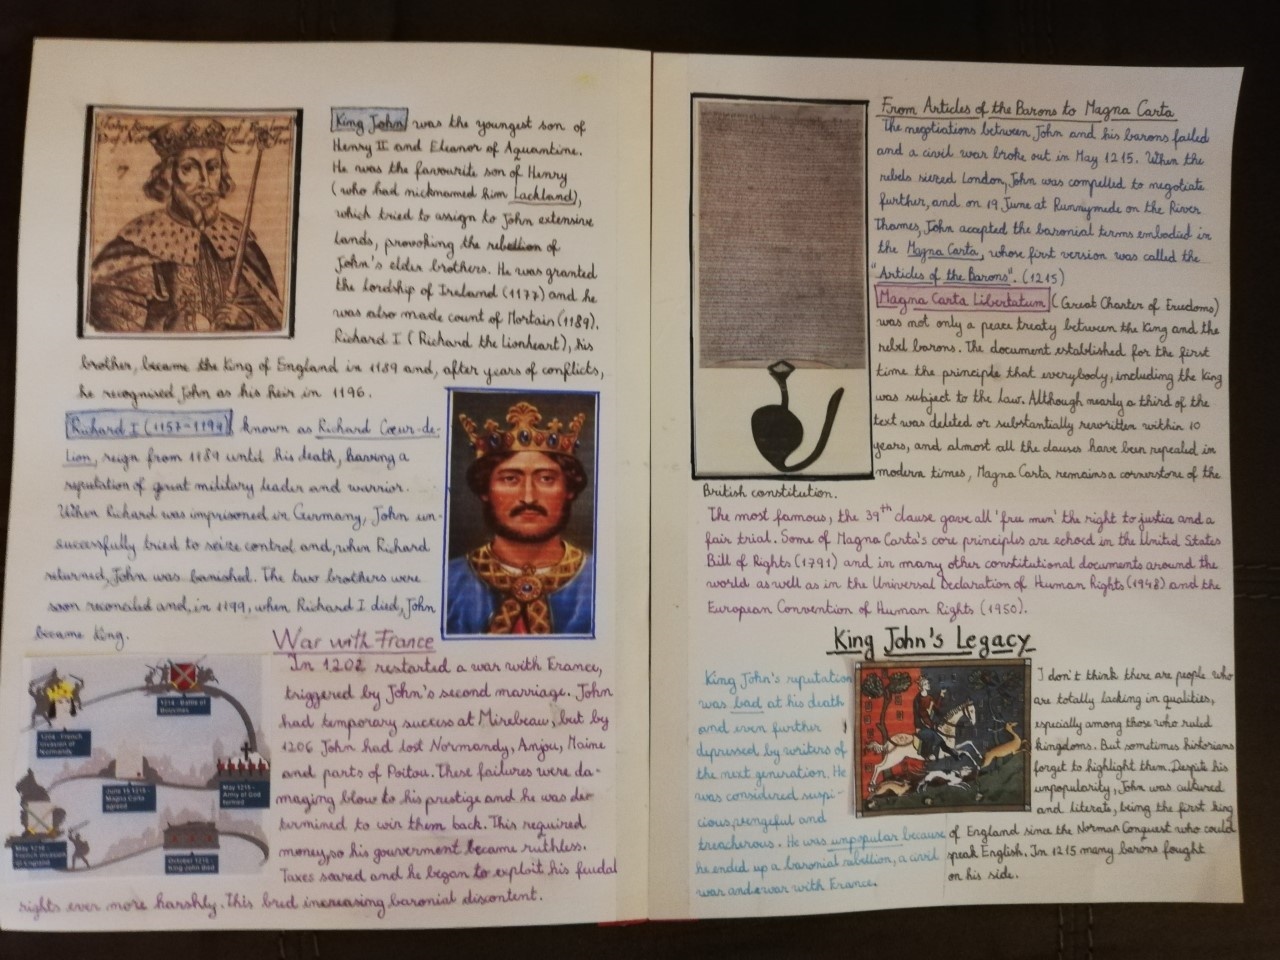 King John was the youngest son of
Henry II and Eleanor of Aquantine.
He was the favourite son of Henry
(who had nicknamed him Lackland),
which tried to assign to John extensive
lands, provoking the rebellion of
John's elder brothers. He was granted
the lordship of Ireland (1177) and he
was also made count of Mortain (1189).
Richard I (Richard the Lionheart), his
brother, became the King of England in 1189 and, after years of conflicts,
he recognised John as his heir in 1196.
Richard I (1157-1199), known as Richard Cœur-de-
Lion, reign from 1189 until his death, having a
reputation of great military leader and warrior.
When Richard was imprisoned in Germany, John un-
successfully tried to seize control and, when Richard
returned, John was banished. The two brothers were
soon reconciled and, in 1199, when Richard I died, John
became King.
War with France
In 1202 restarted a war with France,
triggered by John's second marriage. John
had temporary success at Mirebeau, but by
1206 John had lost Normandy, Anjou, Maine
and parts of Poitou. These failures were da-
maging blow to his prestige and he was de-
termined to win them back. This required
money, so his gouvernment became ruthless.
Taxes soared and he began to exploit his feudal
rights ever more harshly. This bred increasing baronial discontent.
1214 - Battle of
Bouvines
1204 - French
Invasion of
Normandy
June 15 1215 -
Magna Carta
agreed
May 1215 -
Army of God
formed
May 1216 -
French Invasion
of England
October 1216 -
King John Died
From Articles of the Barons to Magna Carta
The negotiations between John and his barons failed
and a civil war broke out in May 1215. When the
rebels siezed London, John was compelled to negotiate
further, and on 19 June at Runnymede on the River
Thames, John accepted the baronial terms embodied in
the Magna Carta, whose first version was called the
"Articles of the Barons". (1215)
Magna Carta Libertatum (Great Charter of Freedoms)
was not only a peace treaty between the King and the
rebel barons. The document established for the first
time the principle that everybody, including the King
was subject to the law. Although nearly a third of the
text was deleted or substantially rewritten within 10
years, and almost all the clauses have been repealed in
modern times, Magna Carta remains a cornerstone of the
British constitution.
The most famous, the 39th clause gave all 'free men' the right to justice and a
fair trial. Some of Magna Carta's core principles are echoed in the United States
Bill of Rights (1791) and in many other constitutional documents around the
world as well as in the Universal Declaration of Human Rights (1948) and the
European Convention of Human Rights (1950).
King John's Legacy
King John's reputation
was bad at his death
and even further
depressed by writers of
the next generation. He
was considered suspi-
cious, vengeful and
treacherous. He was unpopular because
he ended up a baronial rebellion, a civil
war and a war with France.
I don't think there are people who
are totally lacking in qualities,
especially among those who ruled
kingdoms. But sometimes historians
forget to highlight them. Despite his
unpopularity, John was cultured
and literate, being the first king
of England since the Norman Conquest who could
speak English. In 1215 many barons fought
on his side.